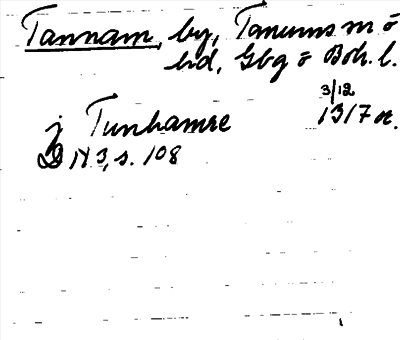 Tannam, by, Tanums sn o
hd, Gbg o Boh. l.
3/12
j Tunhamre 1317 or.
DN 3, s. 108